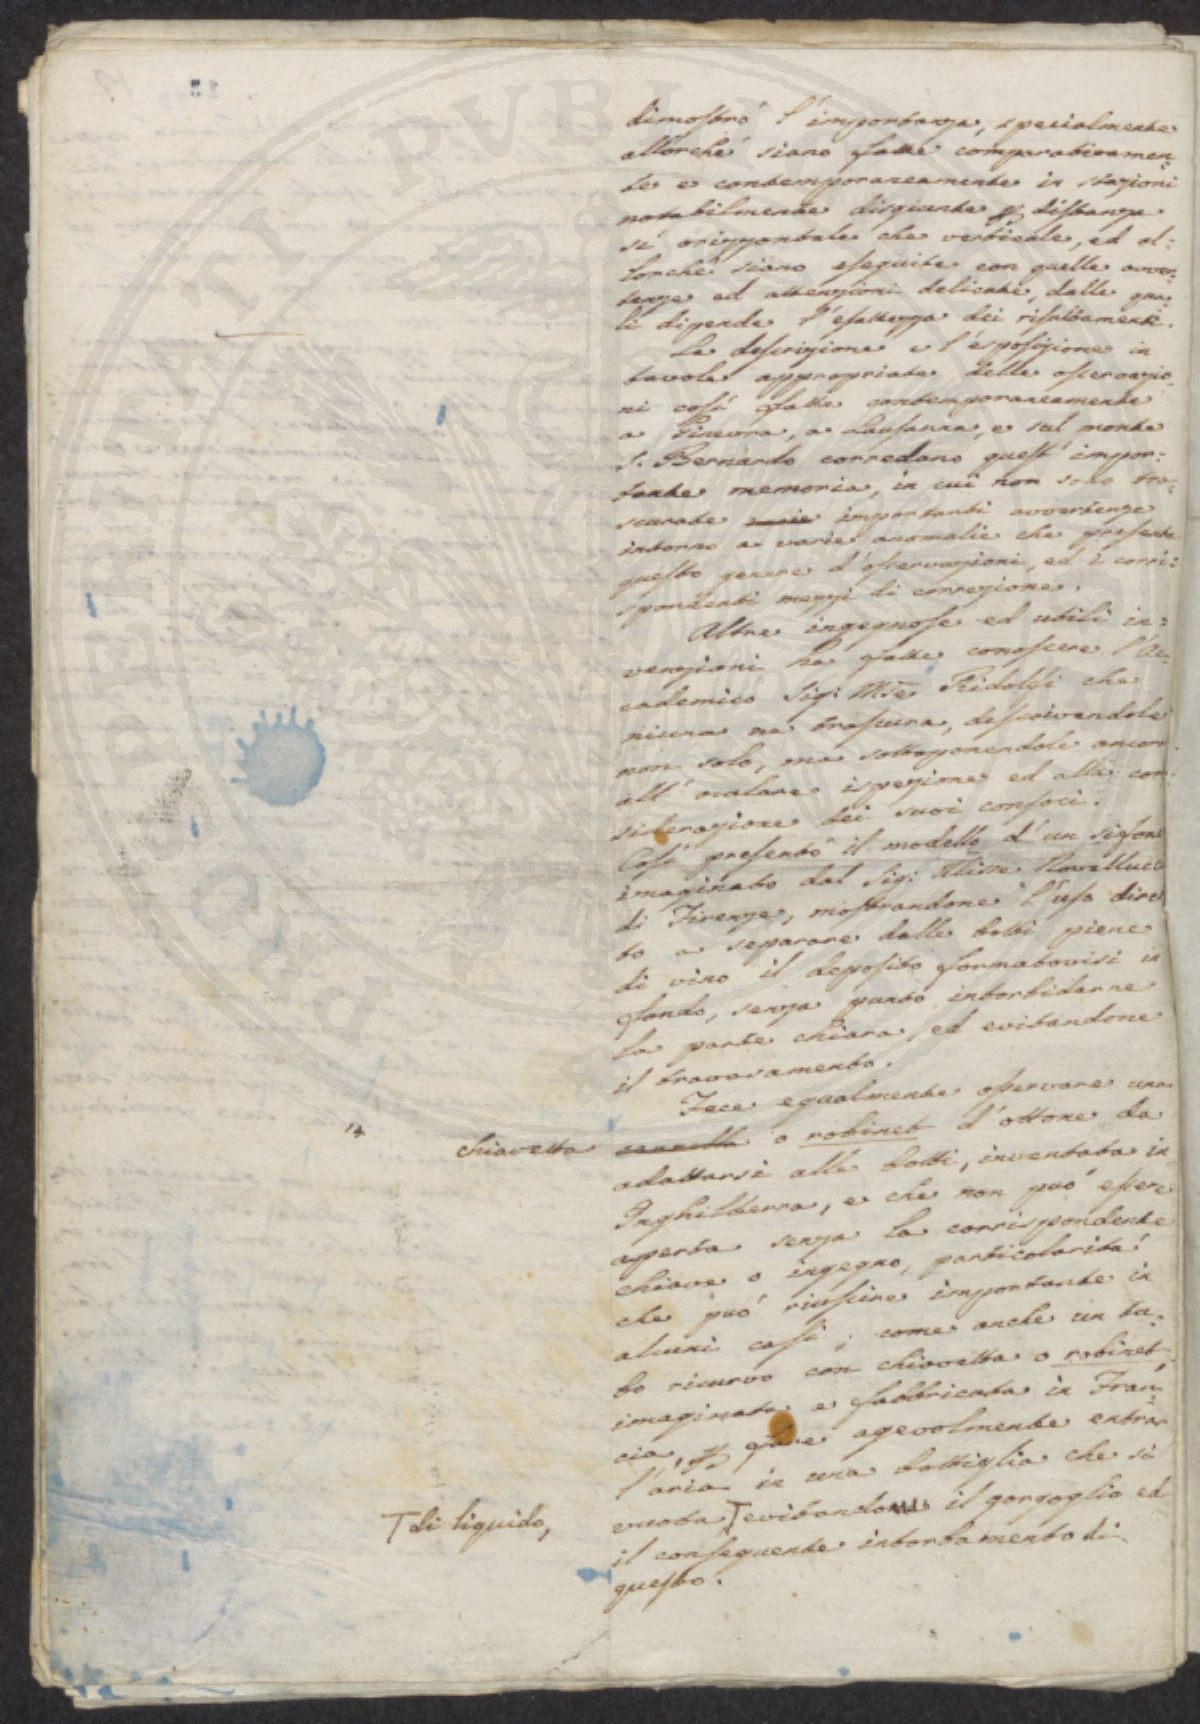 dimostrò l'importanza, specialmente
allorchè siano fatte comparativamen-
te e contemporaneamente in stazioni
notabilmente disgiunte p distanza
sì orizzontale che verticale, ed al:
lorchè siano eseguite con quelle avver-
tenze ed attenzioni delicate, dalle qua-
li dipende l'esattezza dei risultamenti.
La descrizione e l'esposizione in
tavole appropriate delle osservazio-
ni così fatte contemporaneamente
a Ginevra, a Lausanna, e sul monte
S. Bernardo corredano quest'impor:
tante memoria, in cui non sono tra-
scurate varie importanti avvertenze
intorno a varie anomalie che presenta
questo genere d'osservazioni, ed i corri:
spondenti mezzi di correzione.
Altre ingegnose ed utili in:
venzioni ha fatte conoscere l'Ac-
cademico Sig: Mse Ridolfi che
niuna ne trascura, descrivendole
non solo, ma sottoponendole ancora
all'oculare ispezione ed alla con-
siderazione dei suoi consoci.
Così presentò il modello d'un sifone
imaginato dal Sig: Ulisse Novellucci
di Firenze, mostrandone l'uso diret
to a separare dalle botti piene
di vino il deposito formatovisi in
fondo, senza punto intorbidarne
la parte chiara, ed evitandone
il travasamento.
Fece egualmente osservare una
chiavetta cannella o robinet d'ottone da
adattarsi alle botti, inventata in
Inghilterra, e che non può essere
aperta senza la corrispondente
chiave o ingegno, particolarità
che può riuscire importante in
alcuni casi; come anche un tu-
bo ricurvo con chiavetta o robinet
imaginato e fabbricato in Fran-
cia, p fare agevolmente entrar
l'aria in una bottiglia che si
vuota T evitando il gorgoglio ed
T di liquido,
il conseguente intorbamento di
questo.